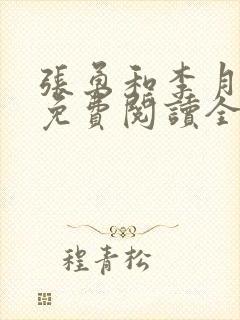 張勇和李月
免費閱讀全
程青松